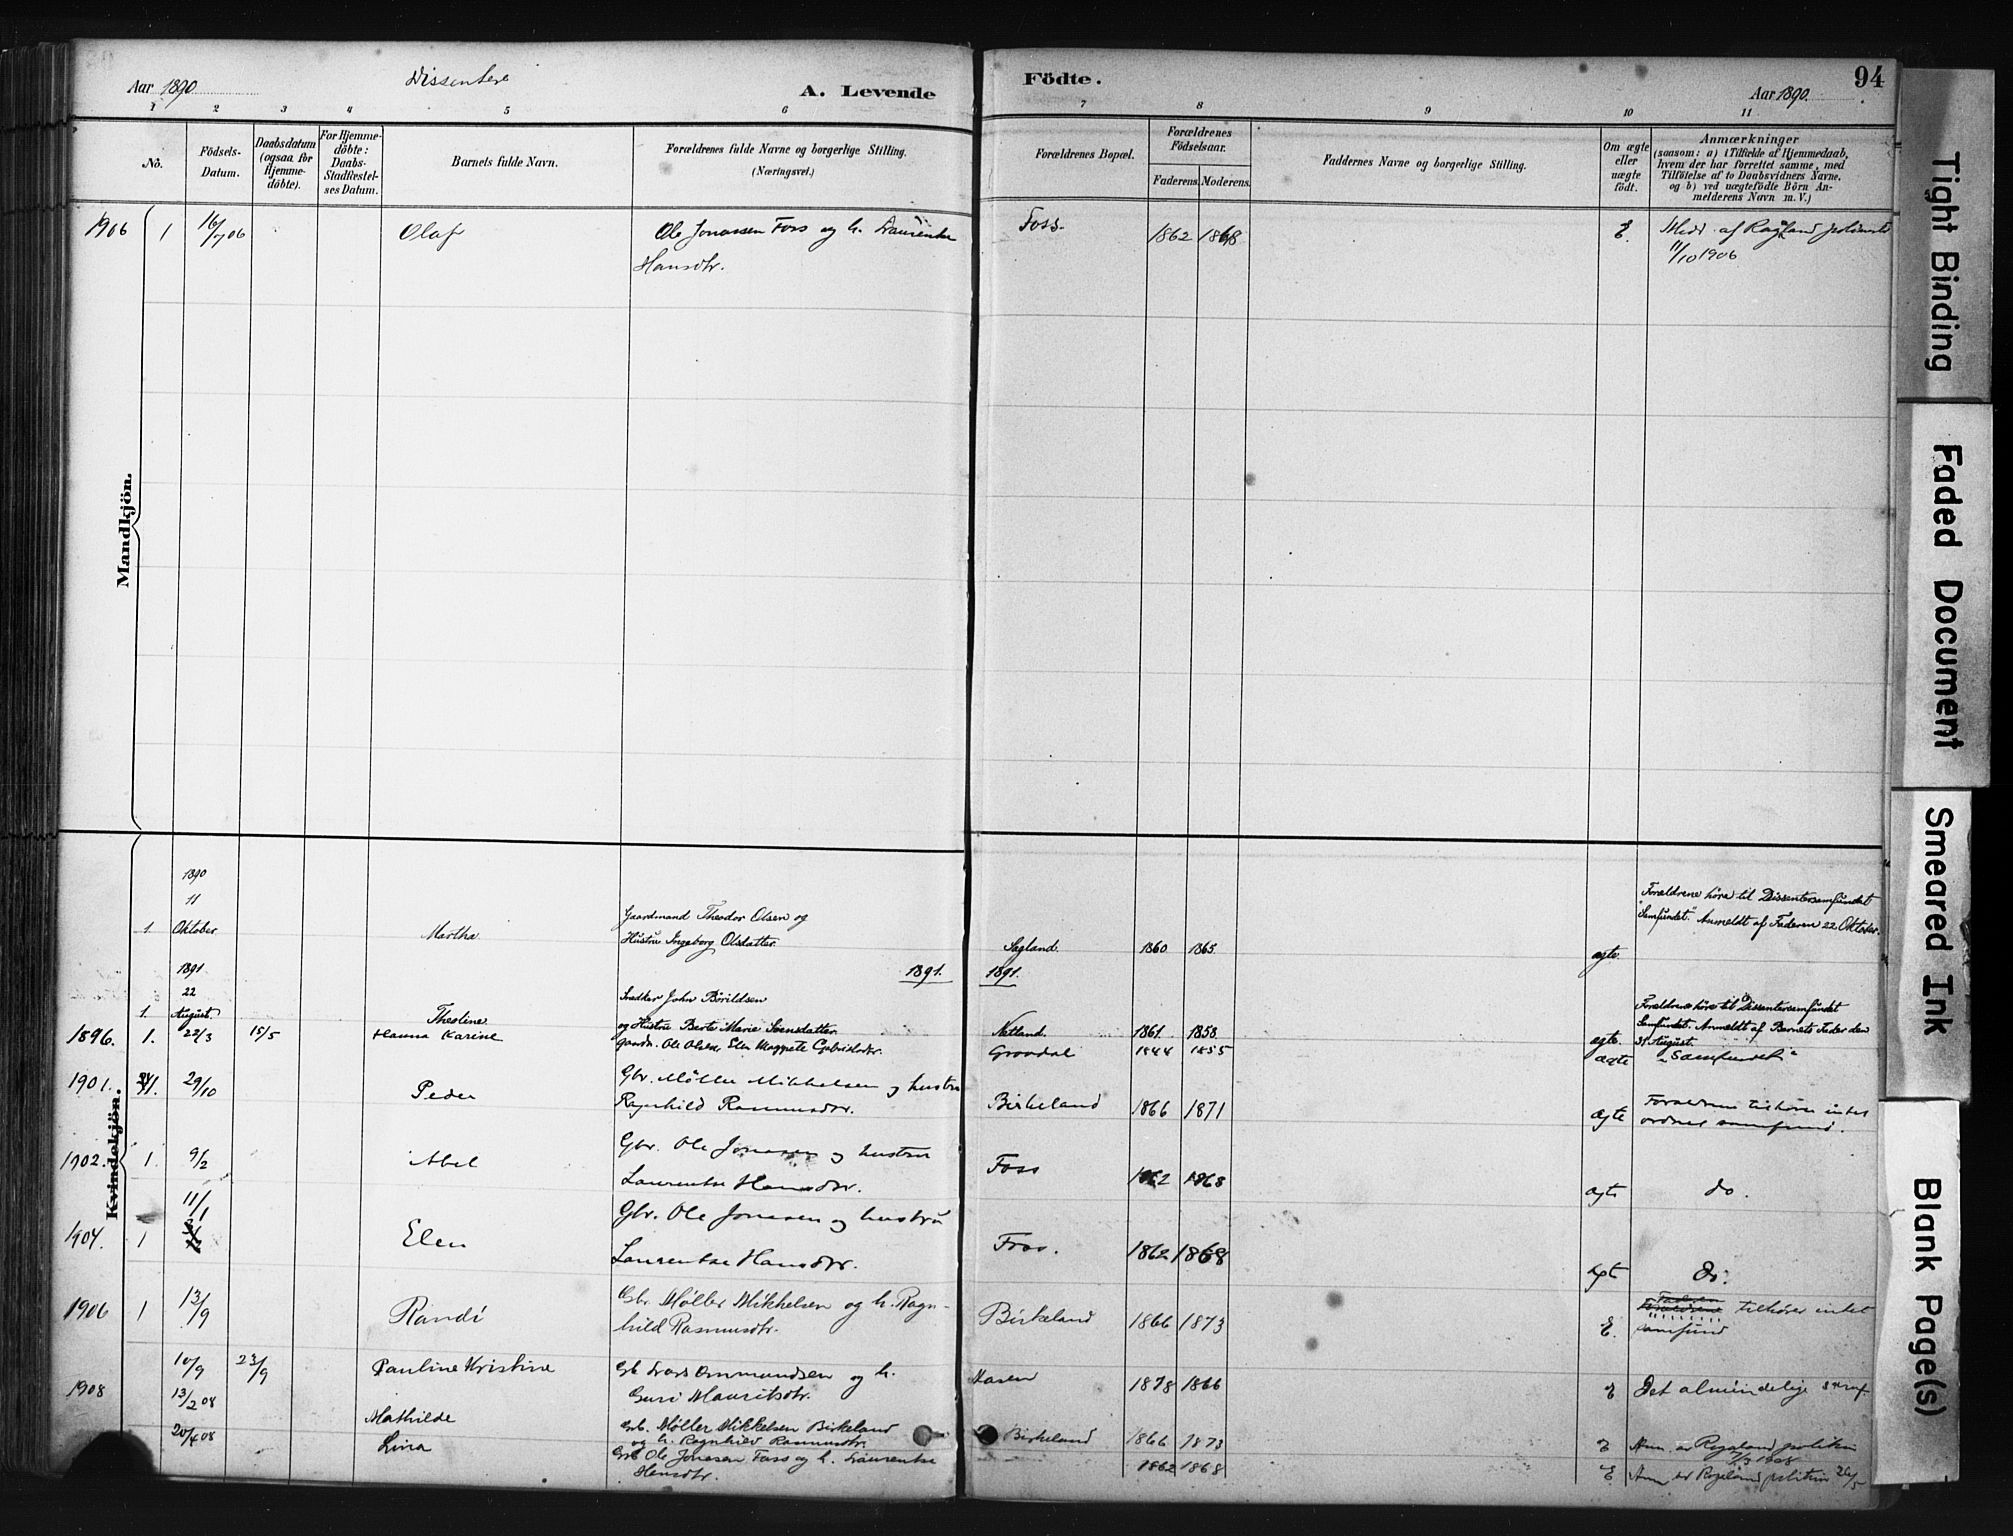 Aar 1890
Dissentere
A. Levende
Födte.
Aar 1890.
94
1 2 3 4 5 6 7 8 9 10 11
No.
Födsels-
Datum.
Daabsdatum
(ogsaa for
Hjemme-
döbte).
For Hjemme-
döbte:
Daabs-
Stadfæstel-
ses Datum.
Barnets fulde Navn.
Forældrenes fulde Navne og borgerlige Stilling.
(Næringsvei.)
Forældrenes Bopæl.
Forældrenes
Födselsaar.
Faderens. Moderens.
Faddernes Navne og borgerlige Stilling.
Om ægte
eller
uægte
födt.
Anmærkninger
(saasom: a) i Tilfælde af Hjemmedaab,
hvem der har forrettet samme, med
Tilföielse af to Daabsvidners Navne,
og b) ved uægtefödte Börn An-
melderens Navn m. V.)
Mandkjön.
1906 1 16/7 06 Olaf Ole Jonassen Foss og h. Laurentse Foss. 1862 1868 E. Medd. af Rogaland
Hansdtr. 11/10 1906
Kvindekjön.
1890
11
1. Oktober Martha Gaardmand Theodor Olsen og
Hustru Ingeborg Olsdatter. Sagland. 1860 1865 ægte. Forældrene höre til Dissentersamfundet
"Samfundet". Anmeldt af Faderen 22 Oktober.
1891. 1891.
1891
22
1. August. Theoline Snedker John Börildsen
og Hustru Berte Marie Svensdatter. Netland 1861. 1858 ægte. Forældrene höre til Dissentersamfundet
Samfundet. Anmeldt af Barnets Fader den
31 August.
1896. 1. 22/3 15/5 Hanna Karine Gaardm. Ole Olsen, Elen Magrete Gabrielsdtr. Grovdal 1844 1855 ægte "Samfundet"
1901. 1. 29/10 Peder Gbr. Møller Mikkelsen og hustru
Ragnhild Rasmusdtr. Birkeland 1866 1871 ægte Forældrene tilhører intet
ordnet samfund.
1902. 1. 9/2 Abel Gbr. Ole Jonassen og hustru
Laurentse Hansdtr. Foss 1862 1868 ægte do.
1904. 1 11/1 Elen Gbr. Ole Jonasen og hustru
Laurentse Hansdtr. Foss. 1862 1868 ægt do.
1906 1 13/9 Randi Gbr Møller Mikkelsen og h. Ragn-
hild Rasmusdtr. Birkeland 1866 1873 E. Faderen
Forældrene tilhører intet
samfund
10/9 23/9 Pauline Kristine Gb Lars Ommundsen og h.
Guri Mauritsdtr. Aasen 1878 1866 E Det almindelige samf.
1908 13/2 08 Mathilde Grb. Møller Mikkelsen Birkeland
og h. Ragnhild Rasmusdtr. Birkeland 1866 1873 E Anm. av Rogaland
1908
20/4 08 Lina Grb Ole Jonasen Foss og h. Laurentse
Hansdtr. 1862 1868 E Anm. av Rogaland 26/5
Tight Binding
Faded Document
Smeared Ink
Blank Page(s)